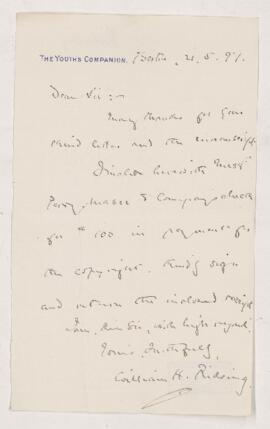 THE YOUTH'S COMPANION. Boston, 21.5.91.
Dear Sir:-
Many thanks for your
kind letter and the manuscript
I inclose herewith Messrs
Perry, Mason & Company's check
for $100 in payment for
the copyright. Kindly sign
and return the inclosed receipt
I am, dear Sir, with high regard,
Yours faithfully,
William H. Rideing.